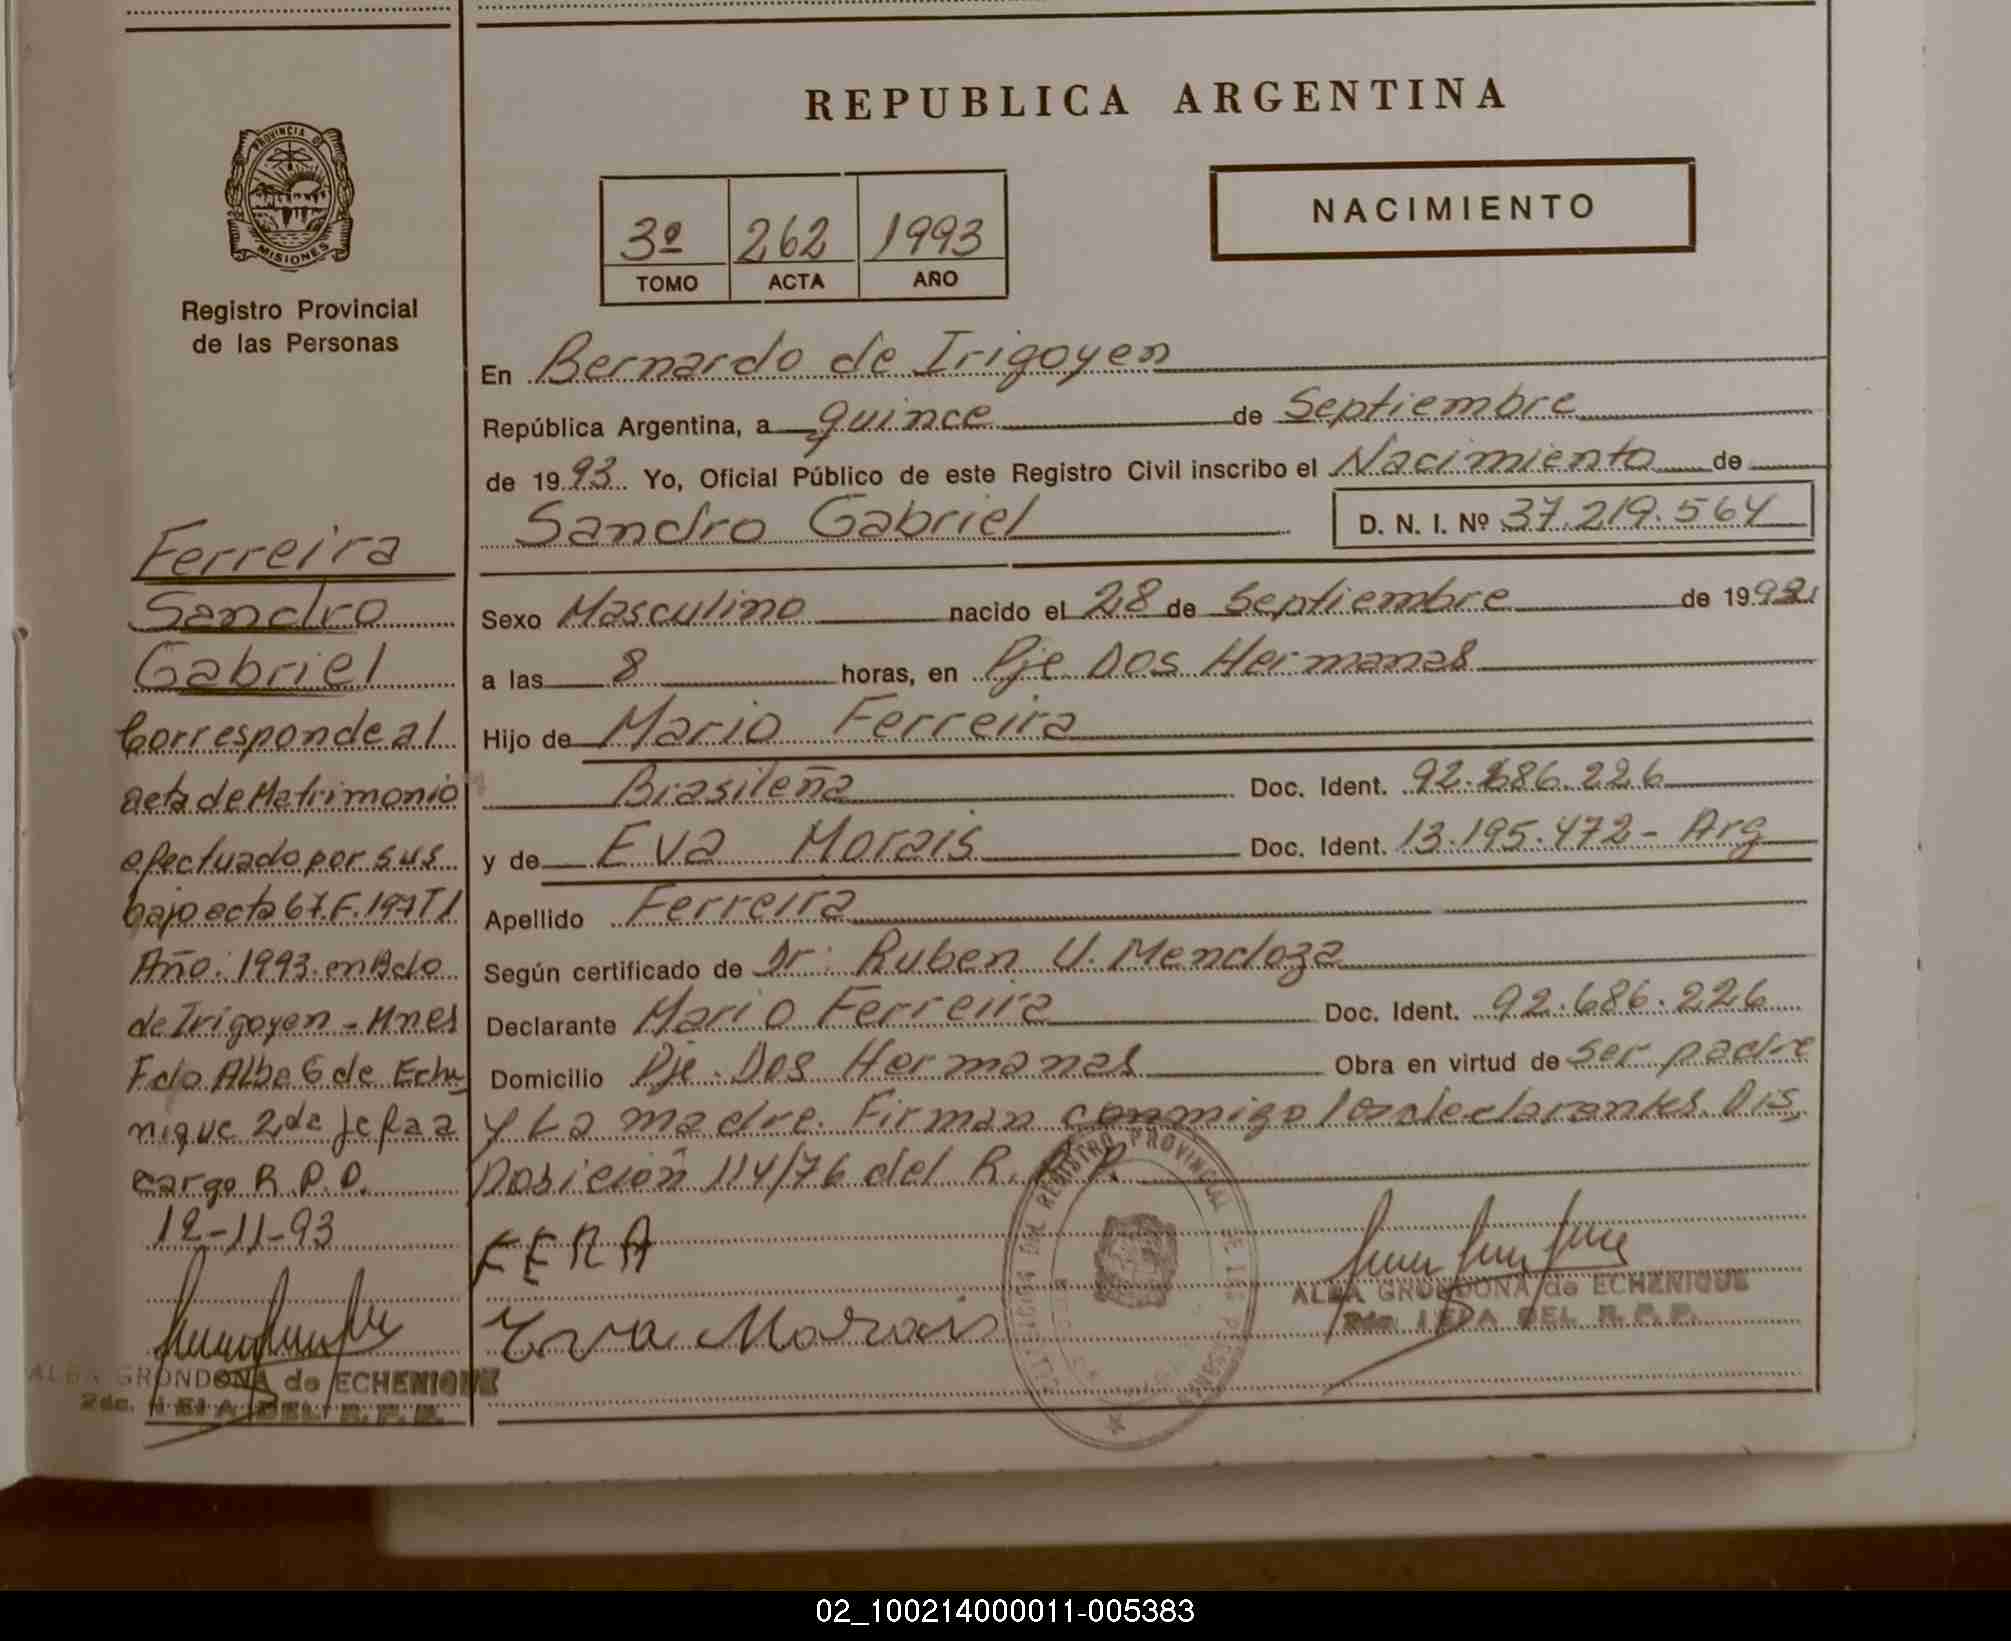 REPUBLICA ARGENTINA
PROVINCIA DE
MISIONES
Registro Provincial
de las Personas
3º 262 1993
TOMO ACTA AÑO
NACIMIENTO
En Bernardo de Irigoyen
República Argentina, a quince de Septiembre
de 1993 Yo, Oficial Público de este Registro Civil inscribo el Nacimiento de
Sandro Gabriel D. N. I. Nº 37.219.564
Sexo Masculino nacido el 28 de Septiembre de 1992
a las 8 horas, en Pje Dos Hermanas
Hijo de Mario Ferreira
Brasileña Doc. Ident. 92.686.226
y de Eva Morais Doc. Ident. 13.195.472- Arg
Apellido Ferreira
Según certificado de Dr: Ruben U. Mendoza
Declarante Mario Ferreira Doc. Ident. 92.686.226
Domicilio Pje. Dos Hermanas Obra en virtud de ser padre
y La madre. Firman conmigo los declarantes. Dis.
posición 114/76 del R. P. P.
FERA
Eva Morais
ALBA GRONDONA de ECHENIQUE
2da. JEFA DEL R. P. P.
REGISTRO PROVINCIAL DE LAS PERSONAS
Ferreira
Sandro
Gabriel
Corresponde al
acta de Matrimonio
efectuado por sus
bajo acta 67.F.197T1
Año: 1993. en Bdo
de Irigoyen - Mnes
Fdo Alba G de Eche
nique 2da Jefa a
cargo R.P.P.
12-11-93
ALBA GRONDONA de ECHENIQUE
2da. JEFA DEL R. P. P.
02_100214000011-005383